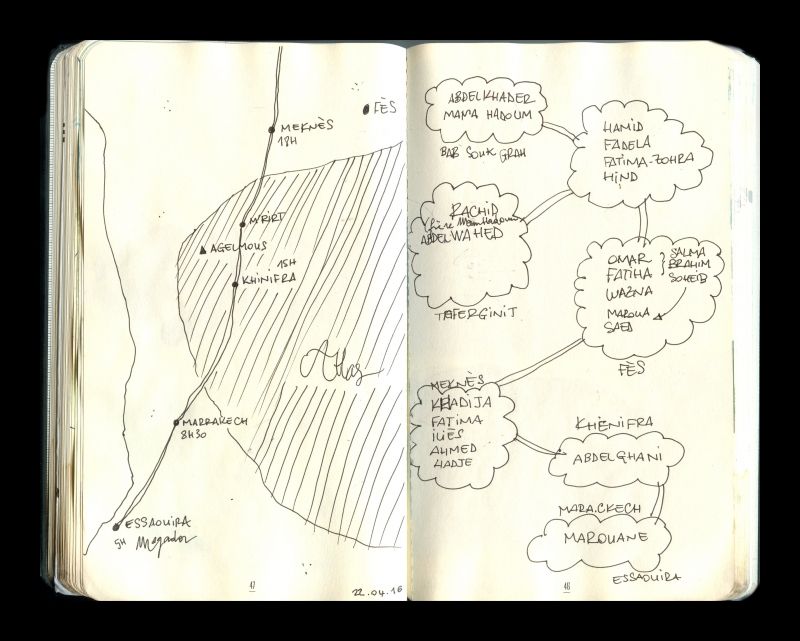 FÈS
MEKNÈS
19H
M'RIRT
AGELMOUS
15H
KHINIFRA
Atlas
MARRAKECH
8H30
ESSAOUIRA
5H Mogador
17
22.04.16
ABDELKHADER
MAMA HADOUM
BAB SOUK GRAH
HAMID
FADELA
FATIMA-ZOHRA
HIND
RACHID
frère MamHadoum
ABDELWAHED
TAFERGINIT
OMAR
FATIHA
WAZNA
MAROUA
SAED
SALMA
BRAHIM
SOHEIB
FÈS
MEKNÈS
KHADIJA
FATIMA
ILIÈS
AHMED
HADJE
KHÈNIFRA
ABDELGHANI
MARA.CKECH
MAROUANE
ESSAOUIRA